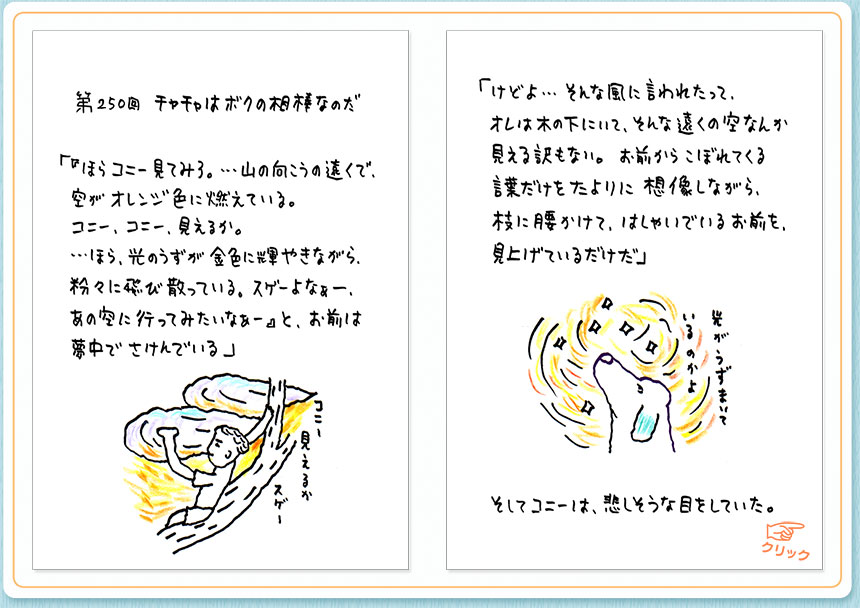 第250回 チャチャはボクの相棒なのだ
「『ほらコニー見てみろ。…山の向こうの遠くで、
空がオレンジ色に燃えている。
コニー、コニー、見えるか。
…ほら、光のうずが金色に輝やきながら、
粉々に飛び散っている。スゲーよなぁー、
あの空に行ってみたいなぁー』と、お前は
夢中でさけんでいる」
コニー
見えるか
スゲー
「けどよ…そんな風に言われたって、
オレは木の下にいて、そんな遠くの空なんか
見える訳もない。お前からこぼれてくる
言葉だけをたよりに想像しながら、
枝に腰かけて、はしゃいでいるお前を、
見上げているだけだ」
光がうずまいて
いるのかよ
そしてコニーは、悲しそうな目をしていた。
クリック